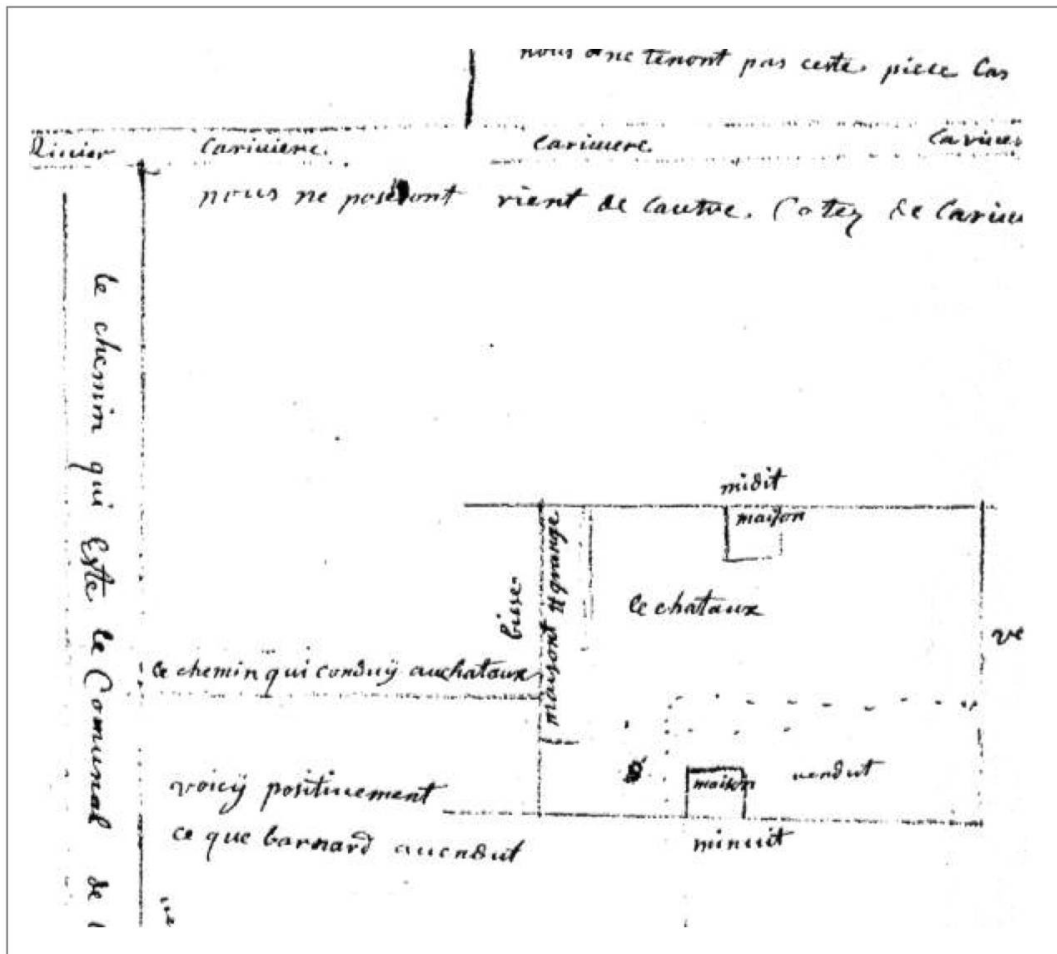 nous ne tenont pas ceste piece Las
Rivier Lariviere. Lariviere. Larivier
nous ne posedont rient de Lautre. Cotez de Lariv
le chemin qui Este le Comunal de l
midit
maison
bisse
maisont et grange
le chataux
ve
le chemin qui conduij au chataux
vendut
maison
minuit
voicij positivement
ce que barnard a vendut